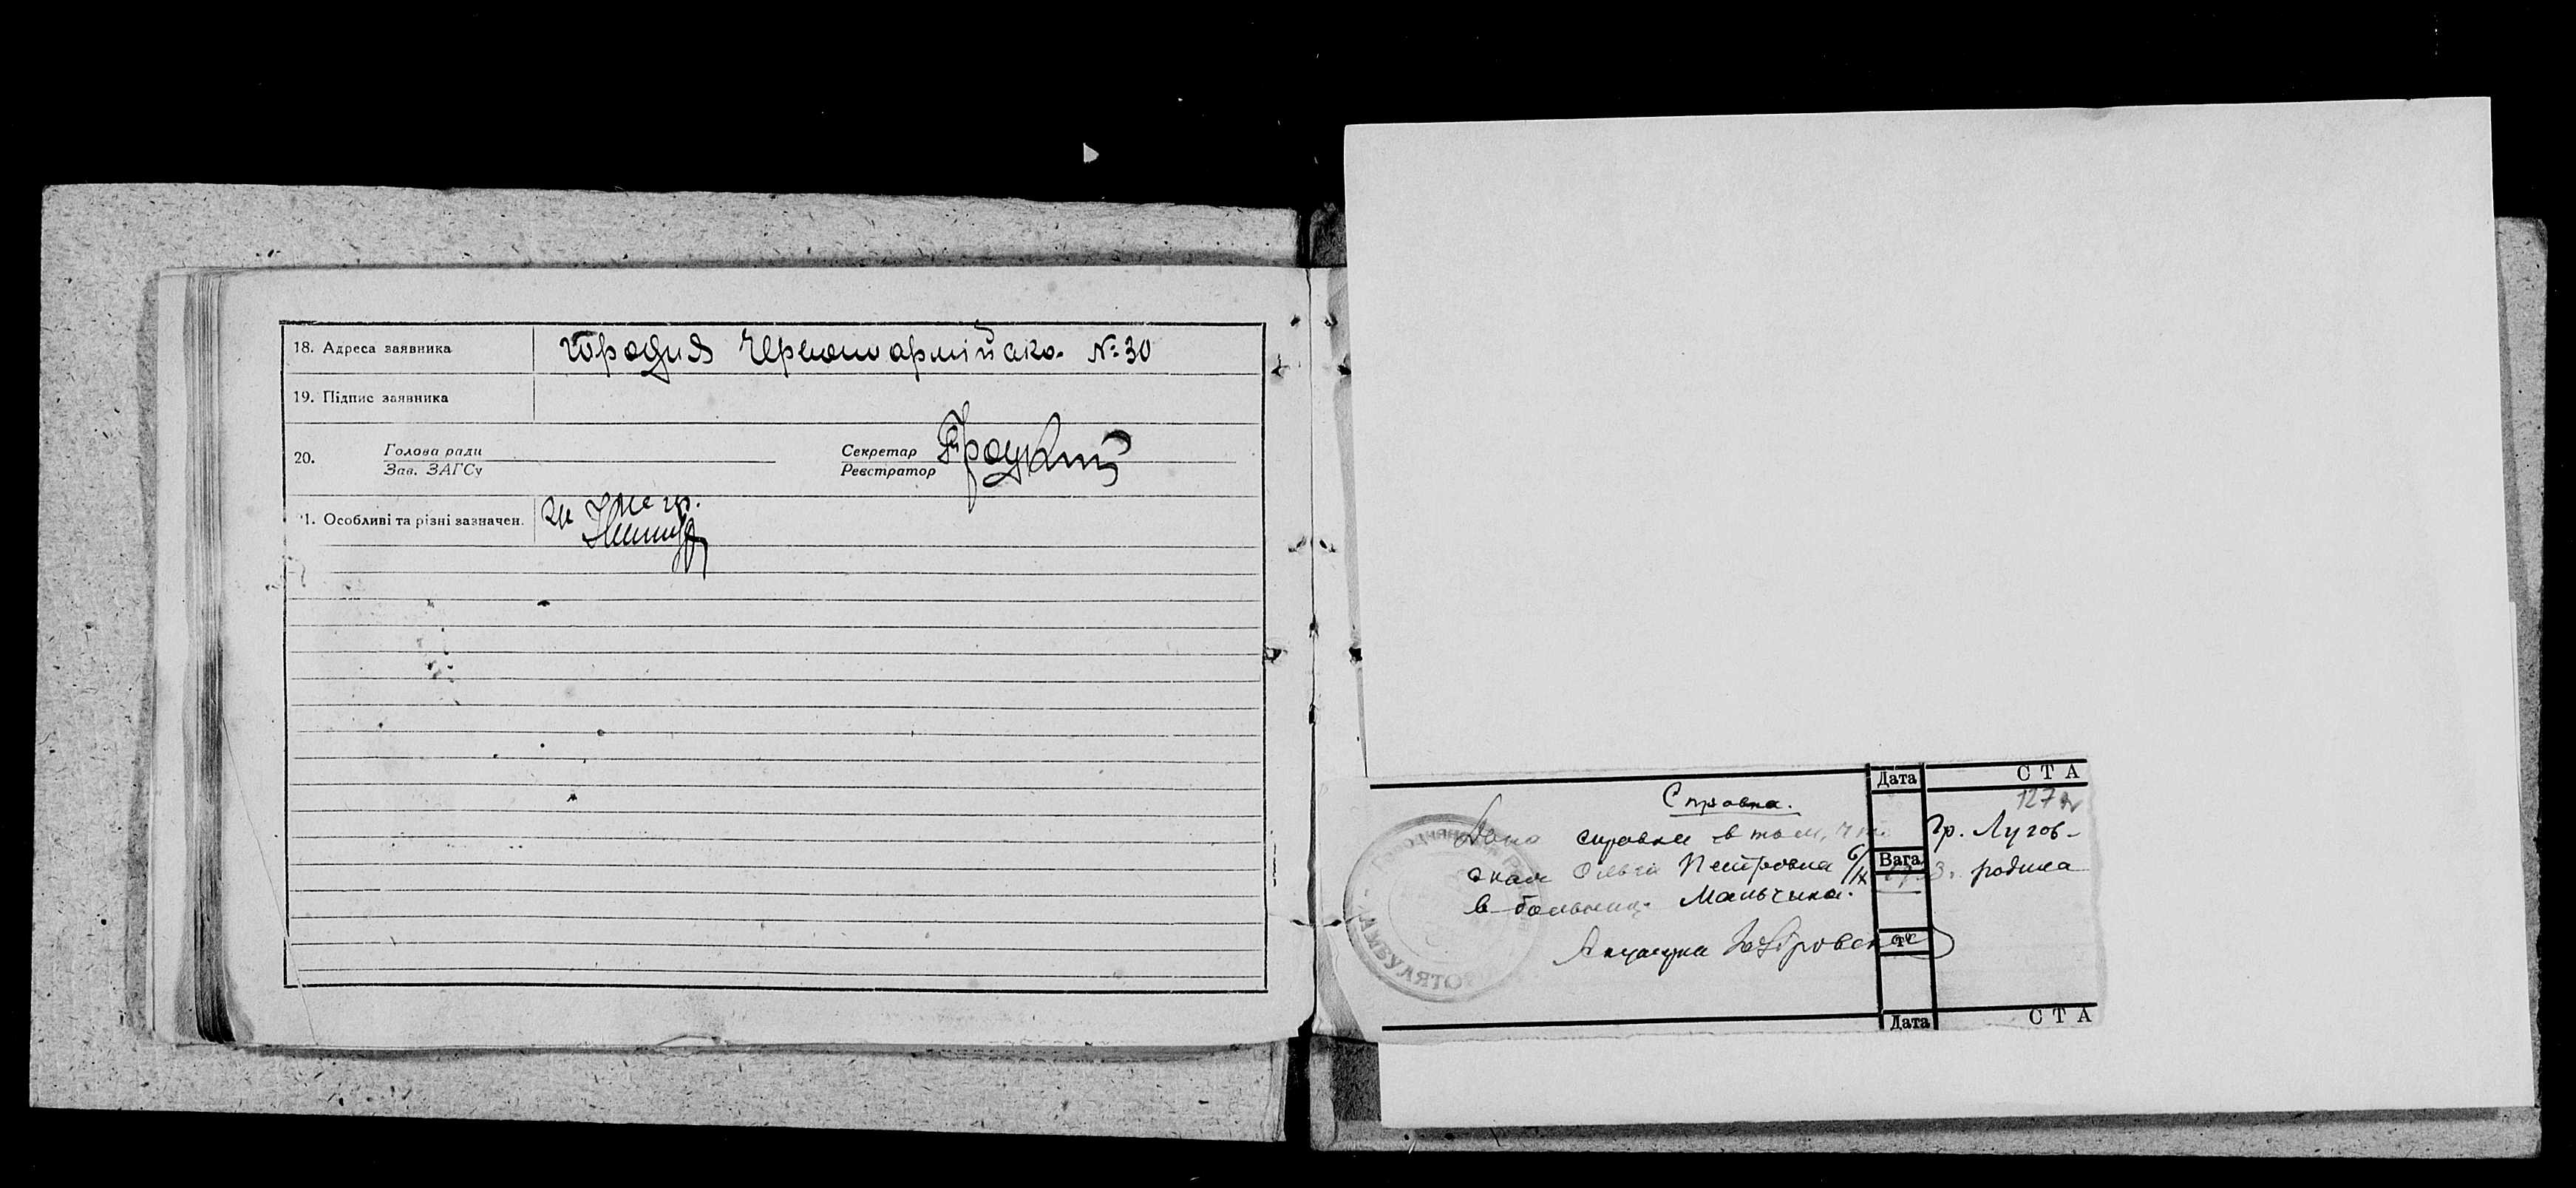 18. Адреса заявника
Городня Червоноармійска. № 30
19. Підпис заявника
20.
Голова ради
Зав. ЗАГСу
Секретар
Реєстратор
1. Особливі та різні зазначен.
Справка.
Дана справка в том, что Гр. Лугов-
ская Ольга Петровна 6/IX родила
в больниц. Мальчика.
Акушерка
127
Дата
СТА
Вага
Дата
СТА
АМБУЛАТО